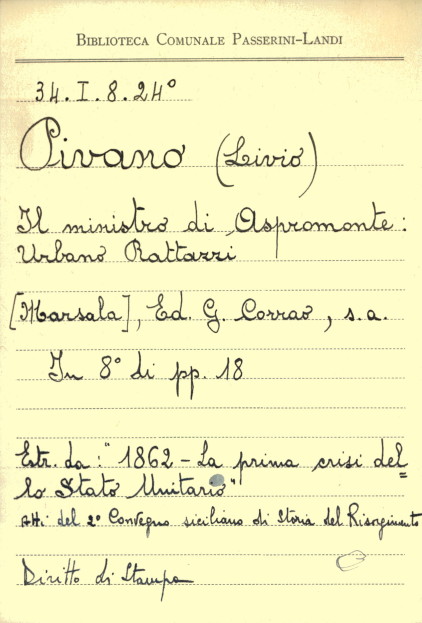 BIBLIOTECA COMUNALE PASSERINI-LANDI
34. I. 8. 24°
Pivano (Livio)
Il ministro di Aspromonte:
Urbano Rattazzi
[Marsala], Ed. G. Corrao, s.a.
In 8° di pp. 18
Estr. da: "1862 - La prima crisi del=
lo Stato Unitario"
Atti del 2° Convegno siciliano di Storia del Risorgimento
Diritto di Stampa